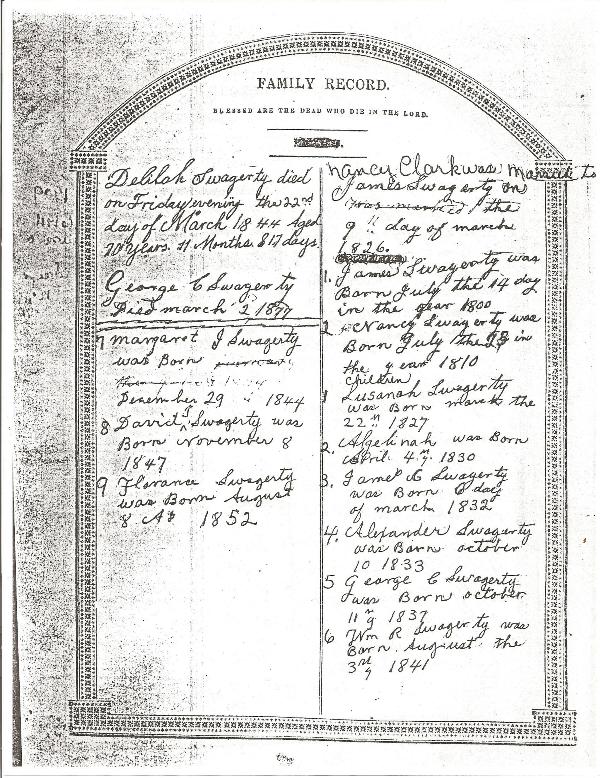 FAMILY RECORD.
BLESSED ARE THE DEAD WHO DIE IN THE LORD.
Delilah Swagerty died
on Friday evening the 22nd
day of March 1844 Aged
70 years. 11 Months. & 17 days.
George C Swagerty
Died march 2 1877
7 margaret J Swagerty
was Born
December 29 1844
8 David S Swagerty was
Born november 8
1847
9 Florance Swagerty
was Born August
8 AD 1852
Nancy Clark was Married to
James Swagerty on
was married the
9 " day of march
1826.
1. James Swagerty was
Born July the 14 day
in the year 1800
2 Nancy Swagerty was
Born July the 23 in
the year 1810
children
1 Susanah Swagerty
was Born march the
22 " 1827
2. Angelinah was Born
April 4 " 1830
3. James C Swagerty
was Born 6 day
of march 1832
4. Alexander Swagerty
was Born october
10 1833
5 George C Swagerty
was Born october
11 " 1837
6 Wm R Swagerty was
Born August the
3rd 1841